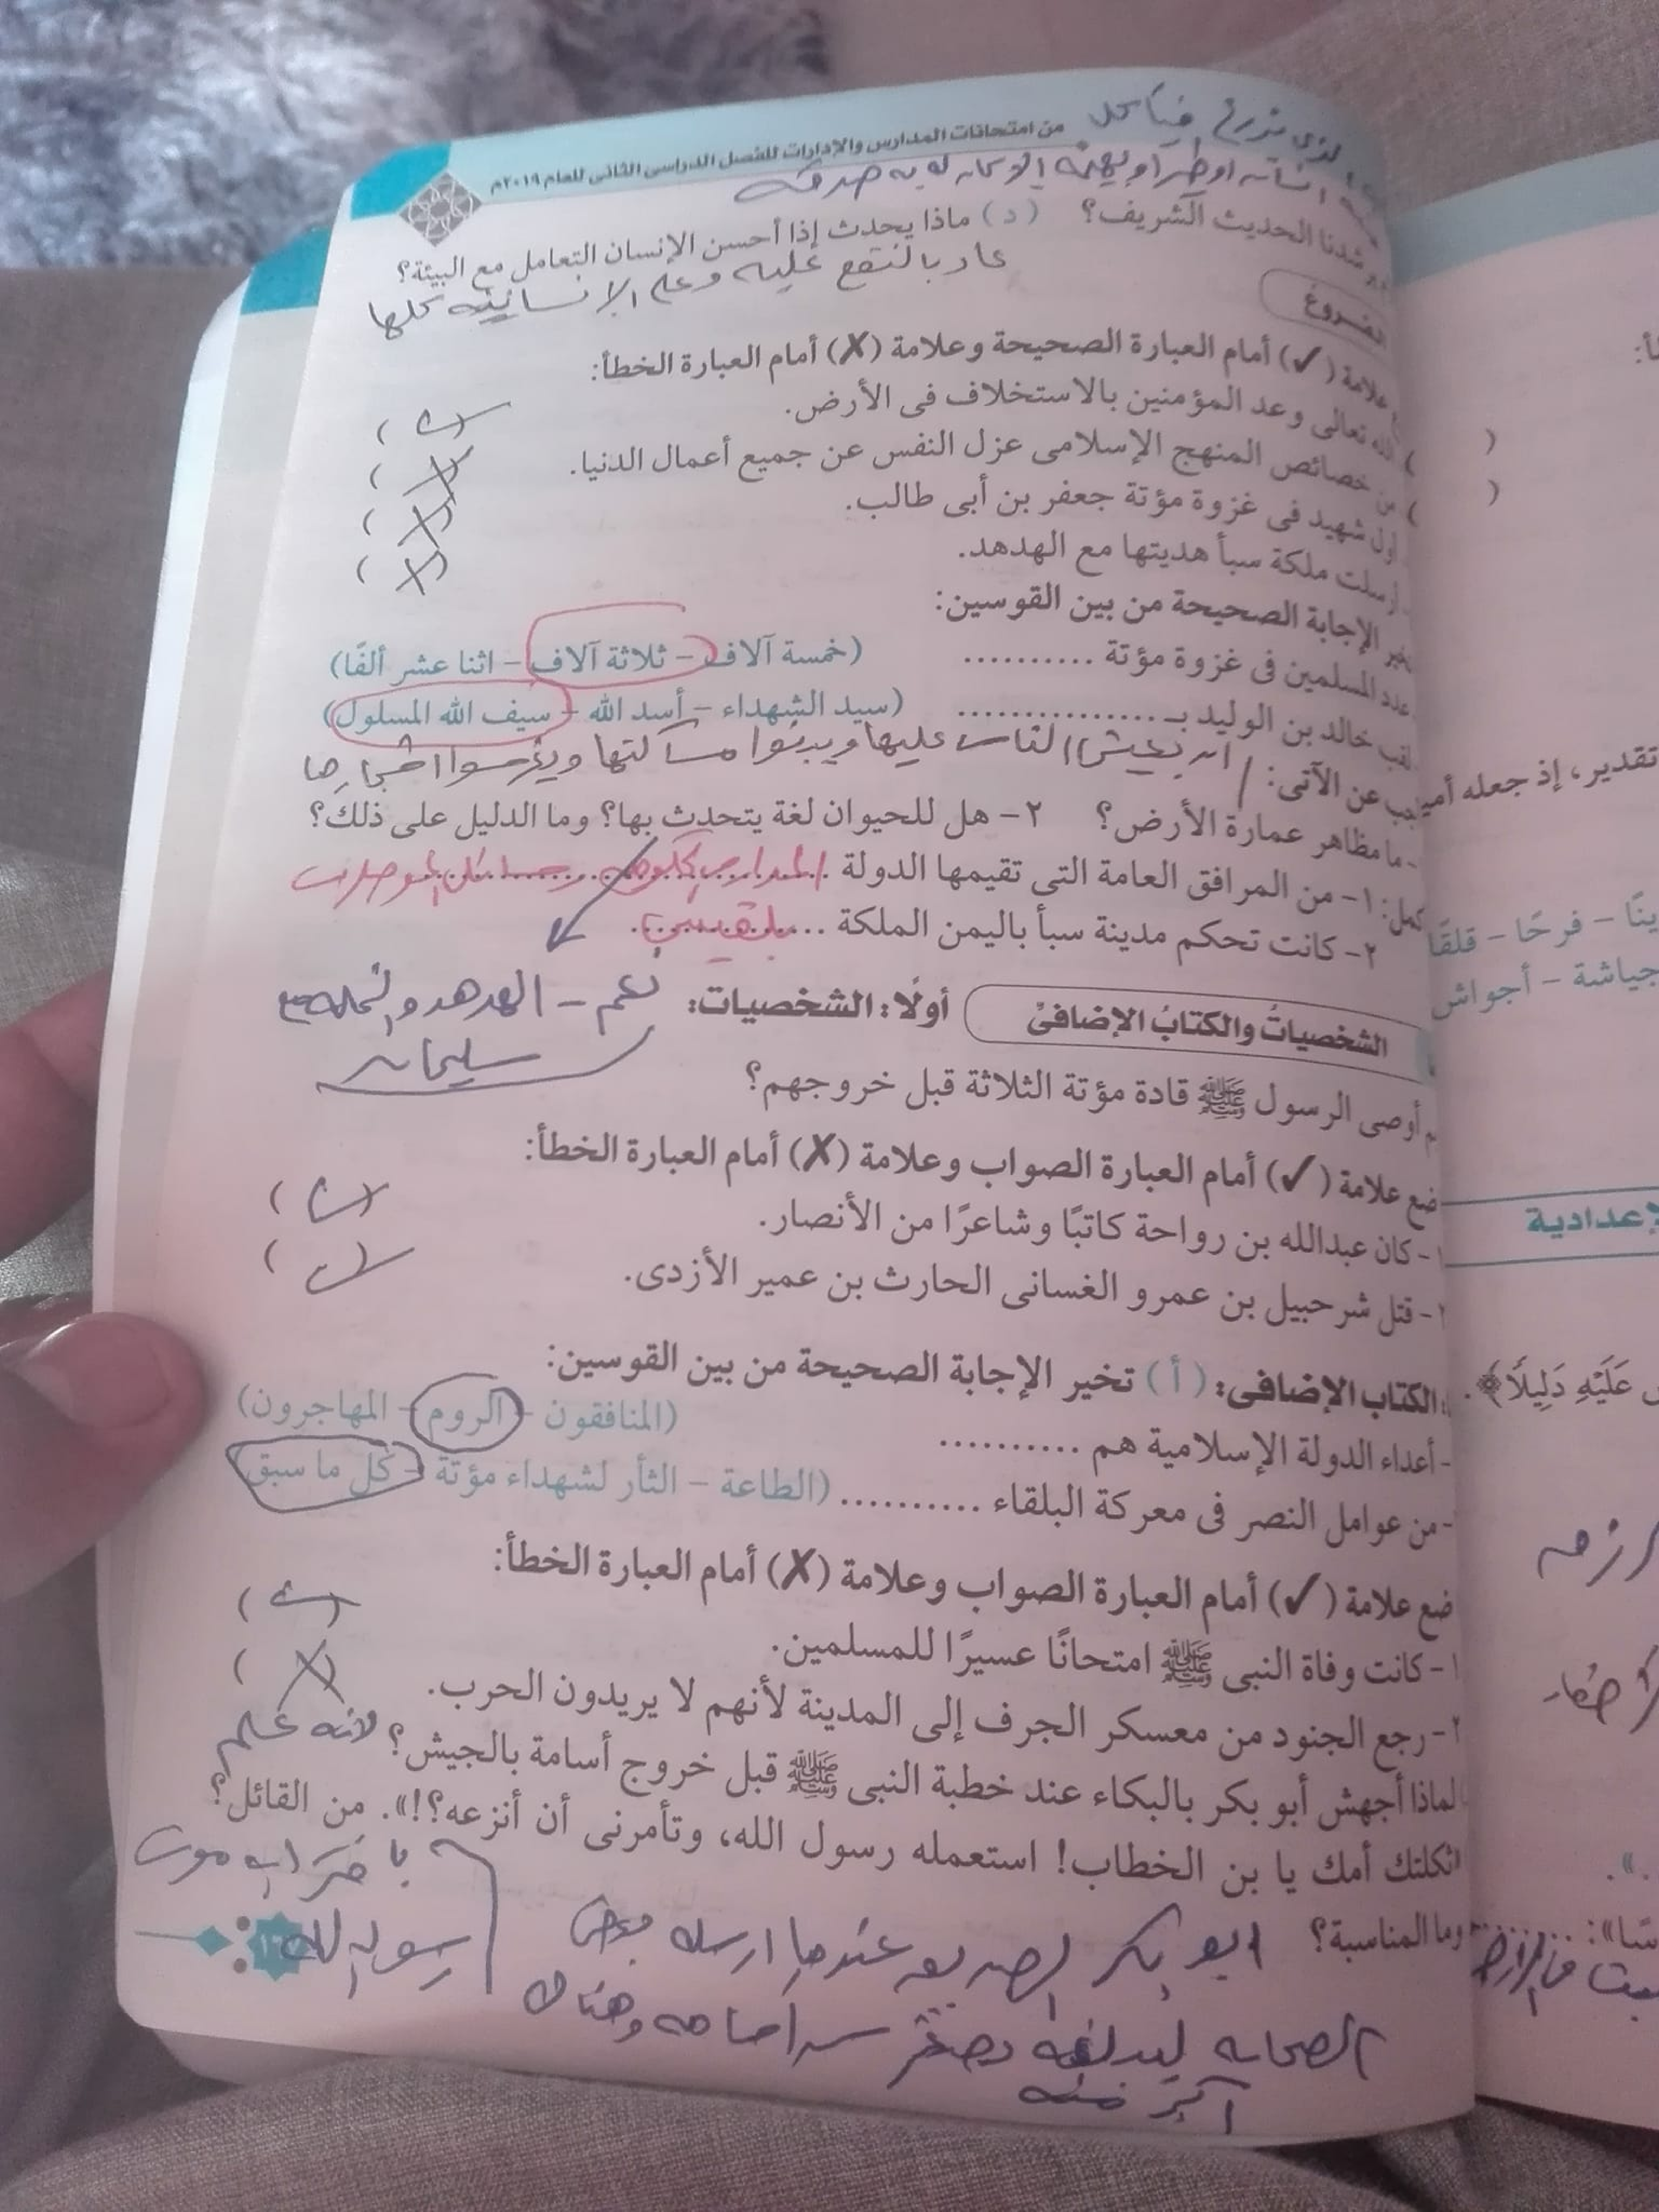 من امتحانات المدارس والإدارات للفصل الدراسى الثانى للعام ٢٠١٩م
كل
انسان او طير او بهيمة الا كان له به صدقة
شدنا الحديث الشريف؟ (د) ماذا يحدث إذا أحسن الإنسان التعامل مع البيئة؟
عاد بالنفع عليه وعلى الإنسانية كلها
علامة (✓) أمام العبارة الصحيحة وعلامة (✗) أمام العبارة الخطأ:
الله تعالى وعد المؤمنين بالاستخلاف فى الأرض. (✓)
من خصائص المنهج الإسلامى عزل النفس عن جميع أعمال الدنيا. (✗)
أول شهيد فى غزوة مؤتة جعفر بن أبى طالب. (✗)
أرسلت ملكة سبأ هديتها مع الهدهد. (✗)
الإجابة الصحيحة من بين القوسين:
عدد المسلمين فى غزوة مؤتة .......... (خمسة آلاف – ثلاثة آلاف – اثنا عشر ألفًا)
خالد بن الوليد بـ ............... (سيد الشهداء – أسد الله – سيف الله المسلول)
عن الآتى: ان يعيش الناس عليها ويبنوا مساكنها ويغرسوا اشجارها
- ما مظاهر عمارة الأرض؟ ٢- هل للحيوان لغة يتحدث بها؟ وما الدليل على ذلك؟
١- من المرافق العامة التى تقيمها الدولة المدارس
٢- كانت تحكم مدينة سبأ باليمن الملكة بلقيس
نعم – الهدهد والنملة مع
سليمان
الشخصياتُ والكتابُ الإضافىْ أولًا: الشخصيات:
أوصى الرسول ﷺ قادة مؤتة الثلاثة قبل خروجهم؟
ضع علامة (✓) أمام العبارة الصواب وعلامة (✗) أمام العبارة الخطأ:
١- كان عبدالله بن رواحة كاتبًا وشاعرًا من الأنصار. (✓)
٢- قتل شرحبيل بن عمرو الغسانى الحارث بن عمير الأزدى. (✓)
الكتاب الإضافى: (أ) تخير الإجابة الصحيحة من بين القوسين:
- أعداء الدولة الإسلامية هم .......... (المنافقون – الروم – المهاجرون)
- من عوامل النصر فى معركة البلقاء .......... (الطاعة – الثأر لشهداء مؤتة – كل ما سبق)
ضع علامة (✓) أمام العبارة الصواب وعلامة (✗) أمام العبارة الخطأ:
١- كانت وفاة النبى ﷺ امتحانًا عسيرًا للمسلمين. (✓)
٢- رجع الجنود من معسكر الجرف إلى المدينة لأنهم لا يريدون الحرب. (✗)
لماذا أجهش أبو بكر بالبكاء عند خطبة النبى ﷺ قبل خروج أسامة بالجيش؟ لانه علم
ثكلتك أمك يا بن الخطاب! استعمله رسول الله، وتأمرنى أن أنزعه؟!». من القائل؟
موت
رسول الله
وما المناسبة؟ ابو بكر الصديق عندما ارسله بعض
الصحابه وهناك
أكبر منه
تقدير، إذ جعله
– فرحًا – قلقًا
جياشة – أجواش
عَلَيْهِ دَلِيلًا﴾.